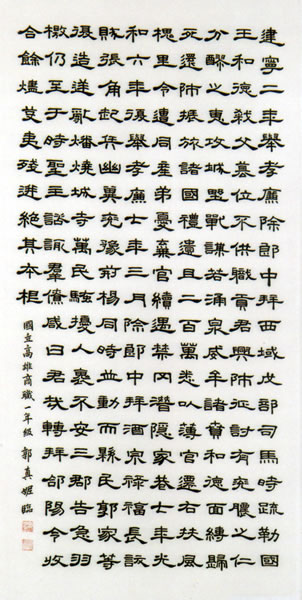 建寧二年舉孝廉除郎中拜西域戊部司馬時疏勒國
王和德弒父篡位不供職貢君興師征討有兗膿之仁
分醪之惠攻城野戰謀若涌泉威牟諸賁和德面縛歸
死還師振旅諸國禮遺且二百萬悉以薄官遷右扶風
槐里令遭同產弟憂棄官續遇禁罔潛隱家巷七年光
和六年復舉孝廉七年三月除郎中拜酒泉祿福長訞
賊張角起兵幽冀兗豫荊楊同時並動而縣民郭家等
復造逆亂燔燒城寺萬民騷擾人褱不安三郡告急羽
檄仍至于時聖主諮諏羣僚咸曰君哉轉拜郃陽令收
合餘燼芟夷殘迸絕其本根
國立高雄商職一年級 郭真姬臨